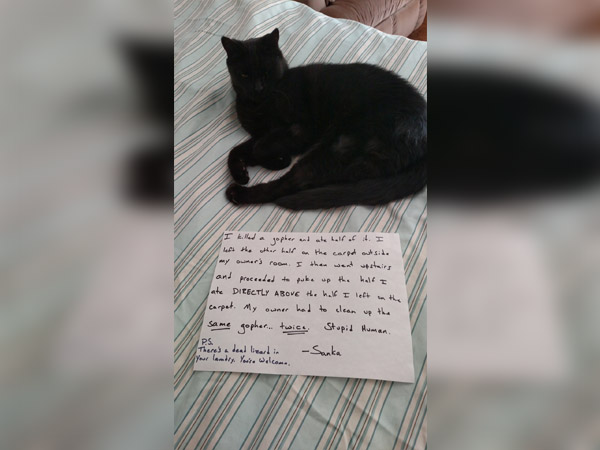 I killed a gopher and ate half of it. I
left the other half on the carpet outside
my owner's room. I then went upstairs
and proceeded to puke up the half I
ate DIRECTLY ABOVE the half I left on the
carpet. My owner had to clean up the
same gopher... twice. Stupid Human.
P.S.
There's a dead lizard in
Your laundry. You're Welcome.
-Sanka